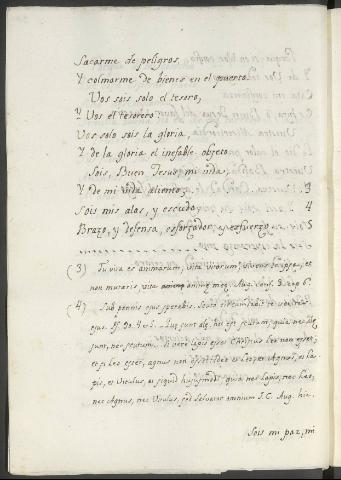 Sacarme de peligros,
Y colmarme de bienes en el puerto.
Vos sois solo el tesoro,
Y Vos el tesorero:
Vos solo sois la gloria,
Y de la gloria el inefable objeto.
Sois, Buen Jesus, mi vida,
Y de mi vida aliento; 3
Sois mis alas, y escudo, 4
Brazo, y defensa, esforzador, y esfuerzo. 5
(3) Tu vita es animarum, vita vitarum, vivens te ipsa, et
non mutaris, vita animæ meæ. Aug. conf. 3. cap. 6.
(4) Sub pennis ejus sperabis. Scuto circumdabit te veritas
ejus. Ps. 90. 4. et 5.
sunt, nec scutum. Si vere leo esset Christus leo non esset;
si leo esset, agnus non esset: ideo et leo, et Agnus, et la-
pis, et Vitulus, et siquid hujusmodi: quia nec lapis, nec leo,
nec Agnus, nec Vitulus, sed Salvator omnium J. C. Aug. hic.
Sois mi paz, mi